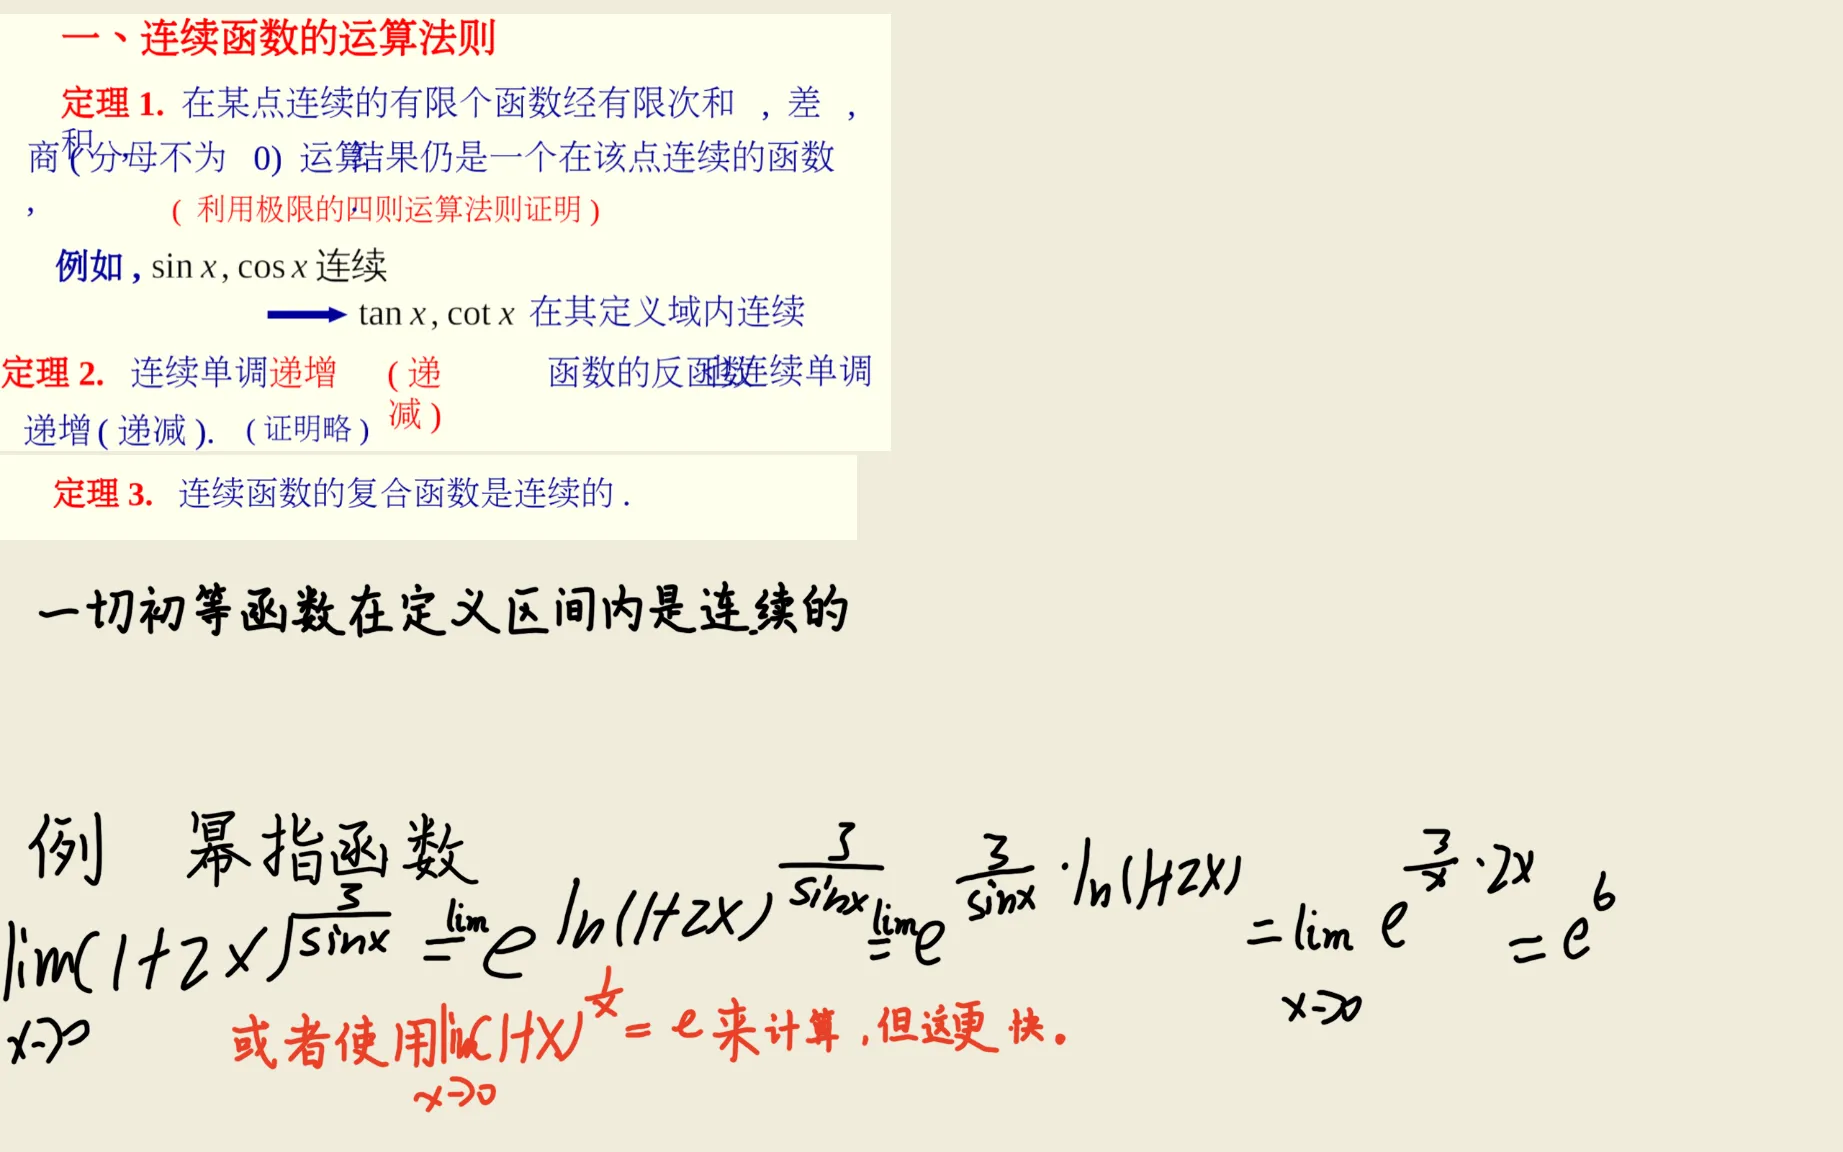 一、连续函数的运算法则
定理 1. 在某点连续的有限个函数经有限次和 , 差 ,
积 ,
商 ( 分母不为 0) 运算 结果仍是一个在该点连续的函数
, ,
( 利用极限的四则运算法则证明 )
例如 , sin x , cos x 连续
tan x , cot x 在其定义域内连续
定理 2. 连续单调递增 ( 递减 ) 函数的反函数 也连续单调
递增 ( 递减 ). ( 证明略 )
定理 3. 连续函数的复合函数是连续的 .
一切初等函数在定义区间内是连续的
例 幂指函数
lim(1+2x)^{3/sinx} = lim e^{ln(1+2x)^{3/sinx}} = lim e^{3/sinx · ln(1+2x)} = lim e^{3/x · 2x} = e^6
x→0 x→0
或者使用lim(1+x)^{1/x} = e来计算,但这更快。
x→0